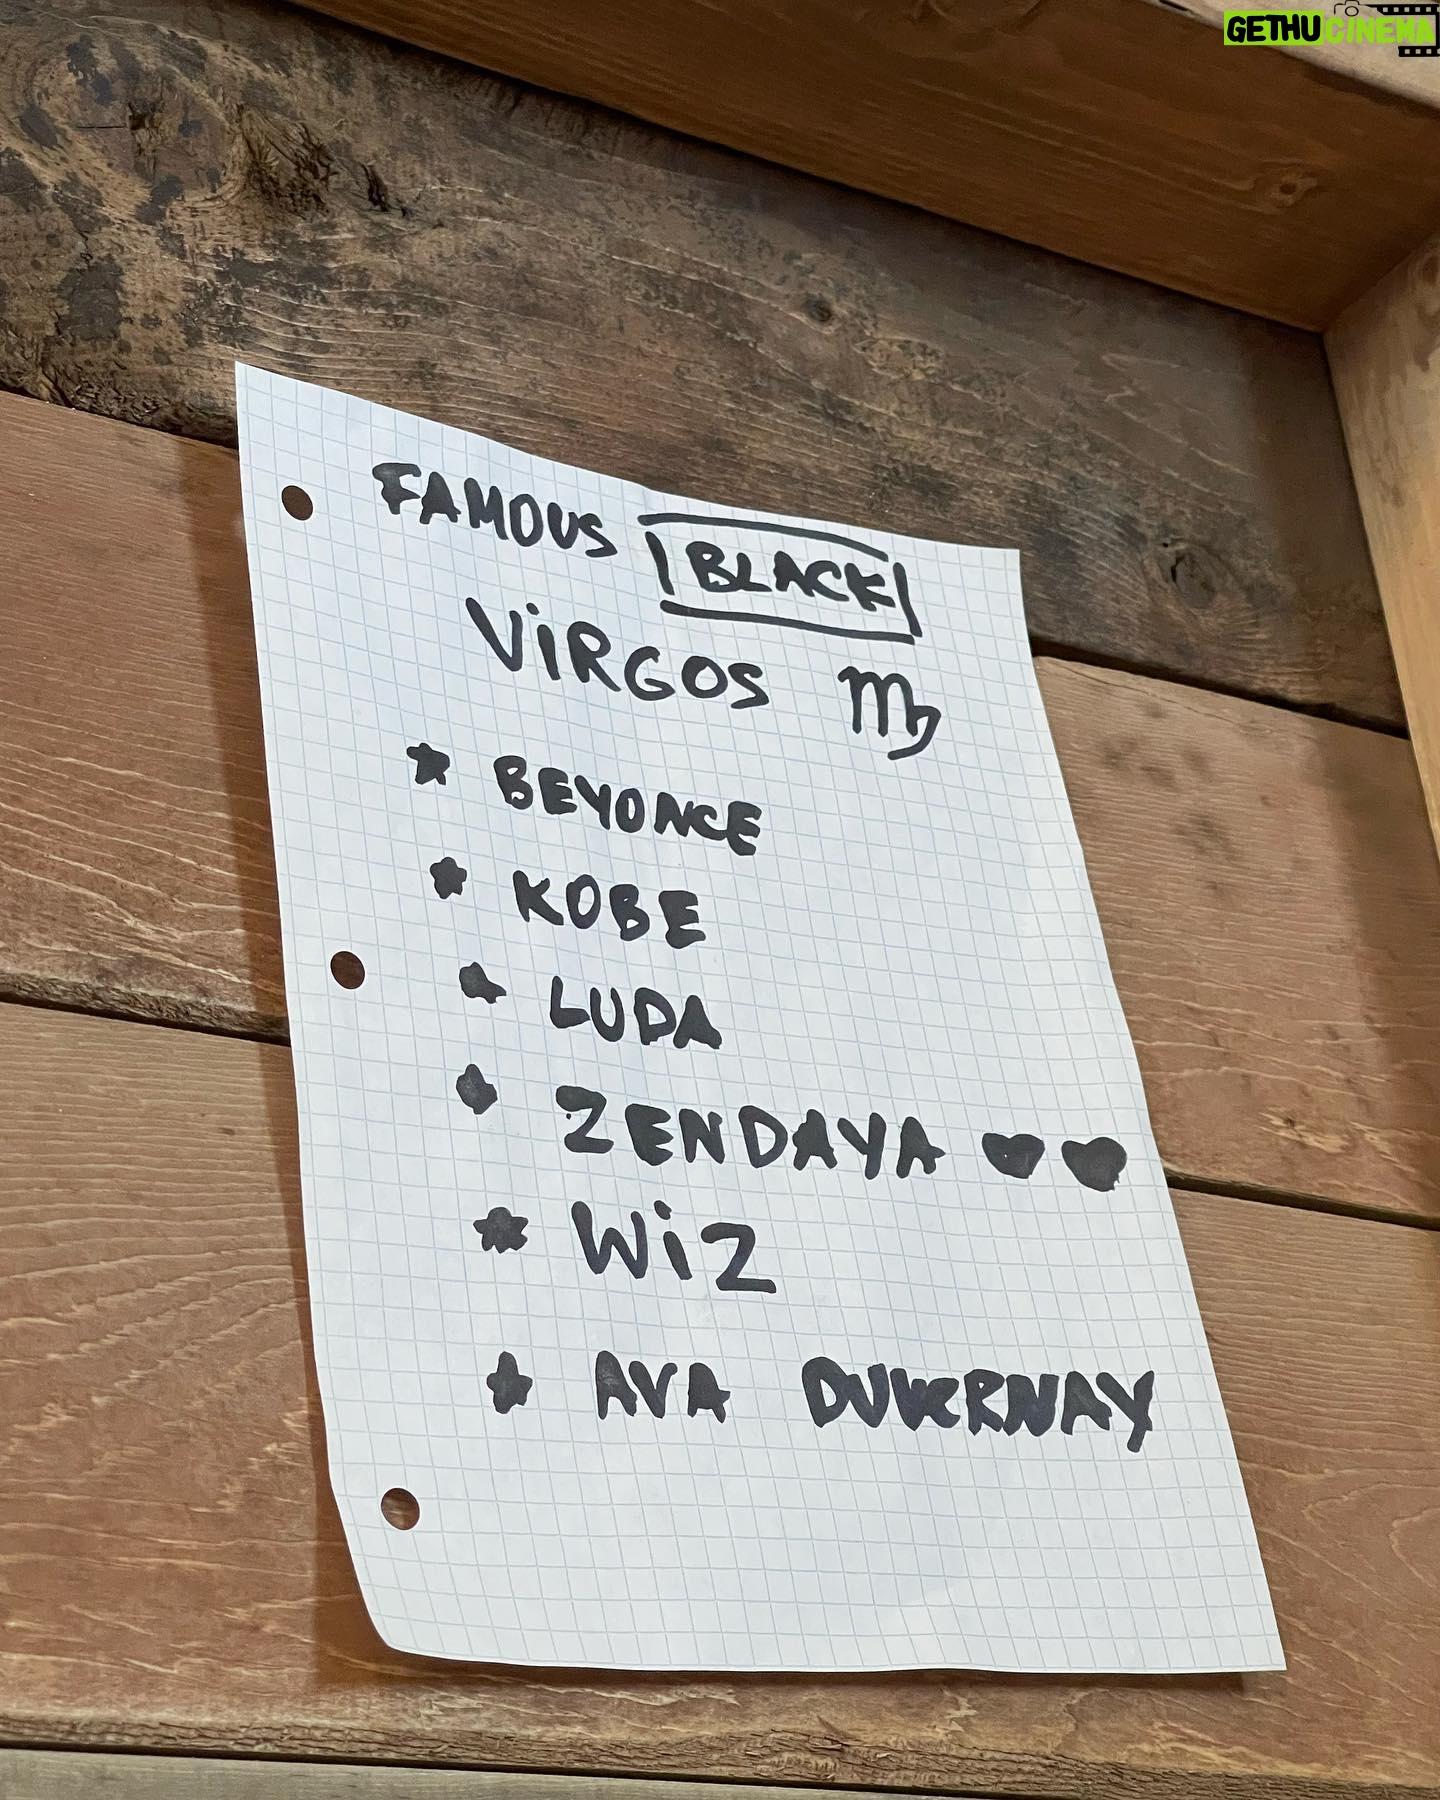 GETHU CINEMA
FAMOUS BLACK
ViRGOS ♍
★ BEYONCE
★ KOBE
★ LUDA
★ ZENDAYA ♥♥
★ WiZ
★ AVA DUVERNAY